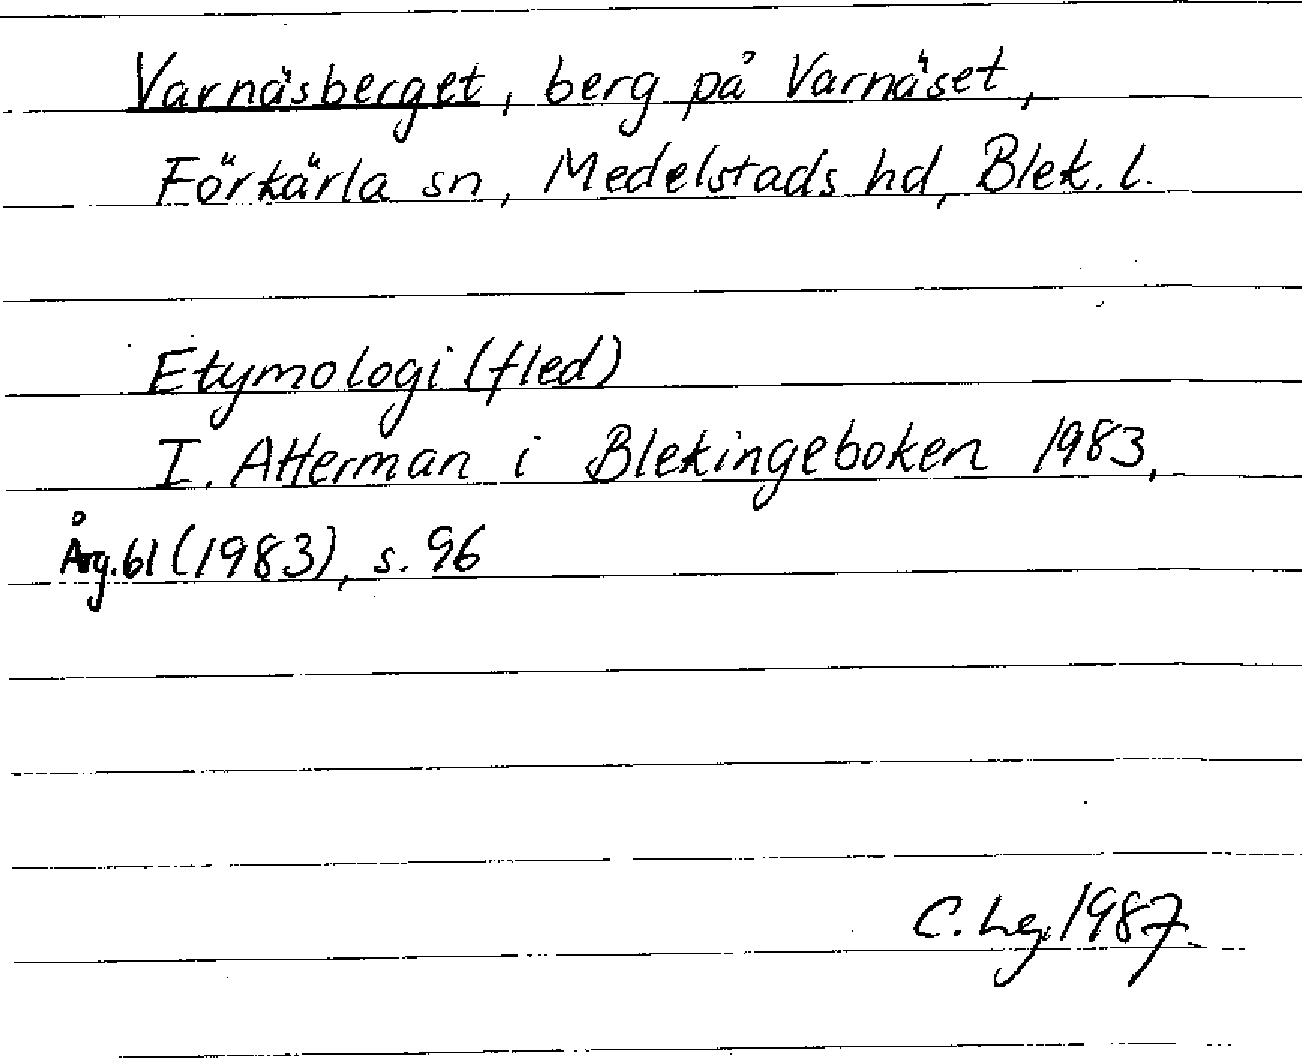 Varnäsberget, berg på Varnäset,
Förkärla sn, Medelstads hd, Blek. l.
Etymologi (fled)
I. Atterman i Blekingeboken 1983,
Årg. 61 (1983), s. 96
C. Lg. 1987.